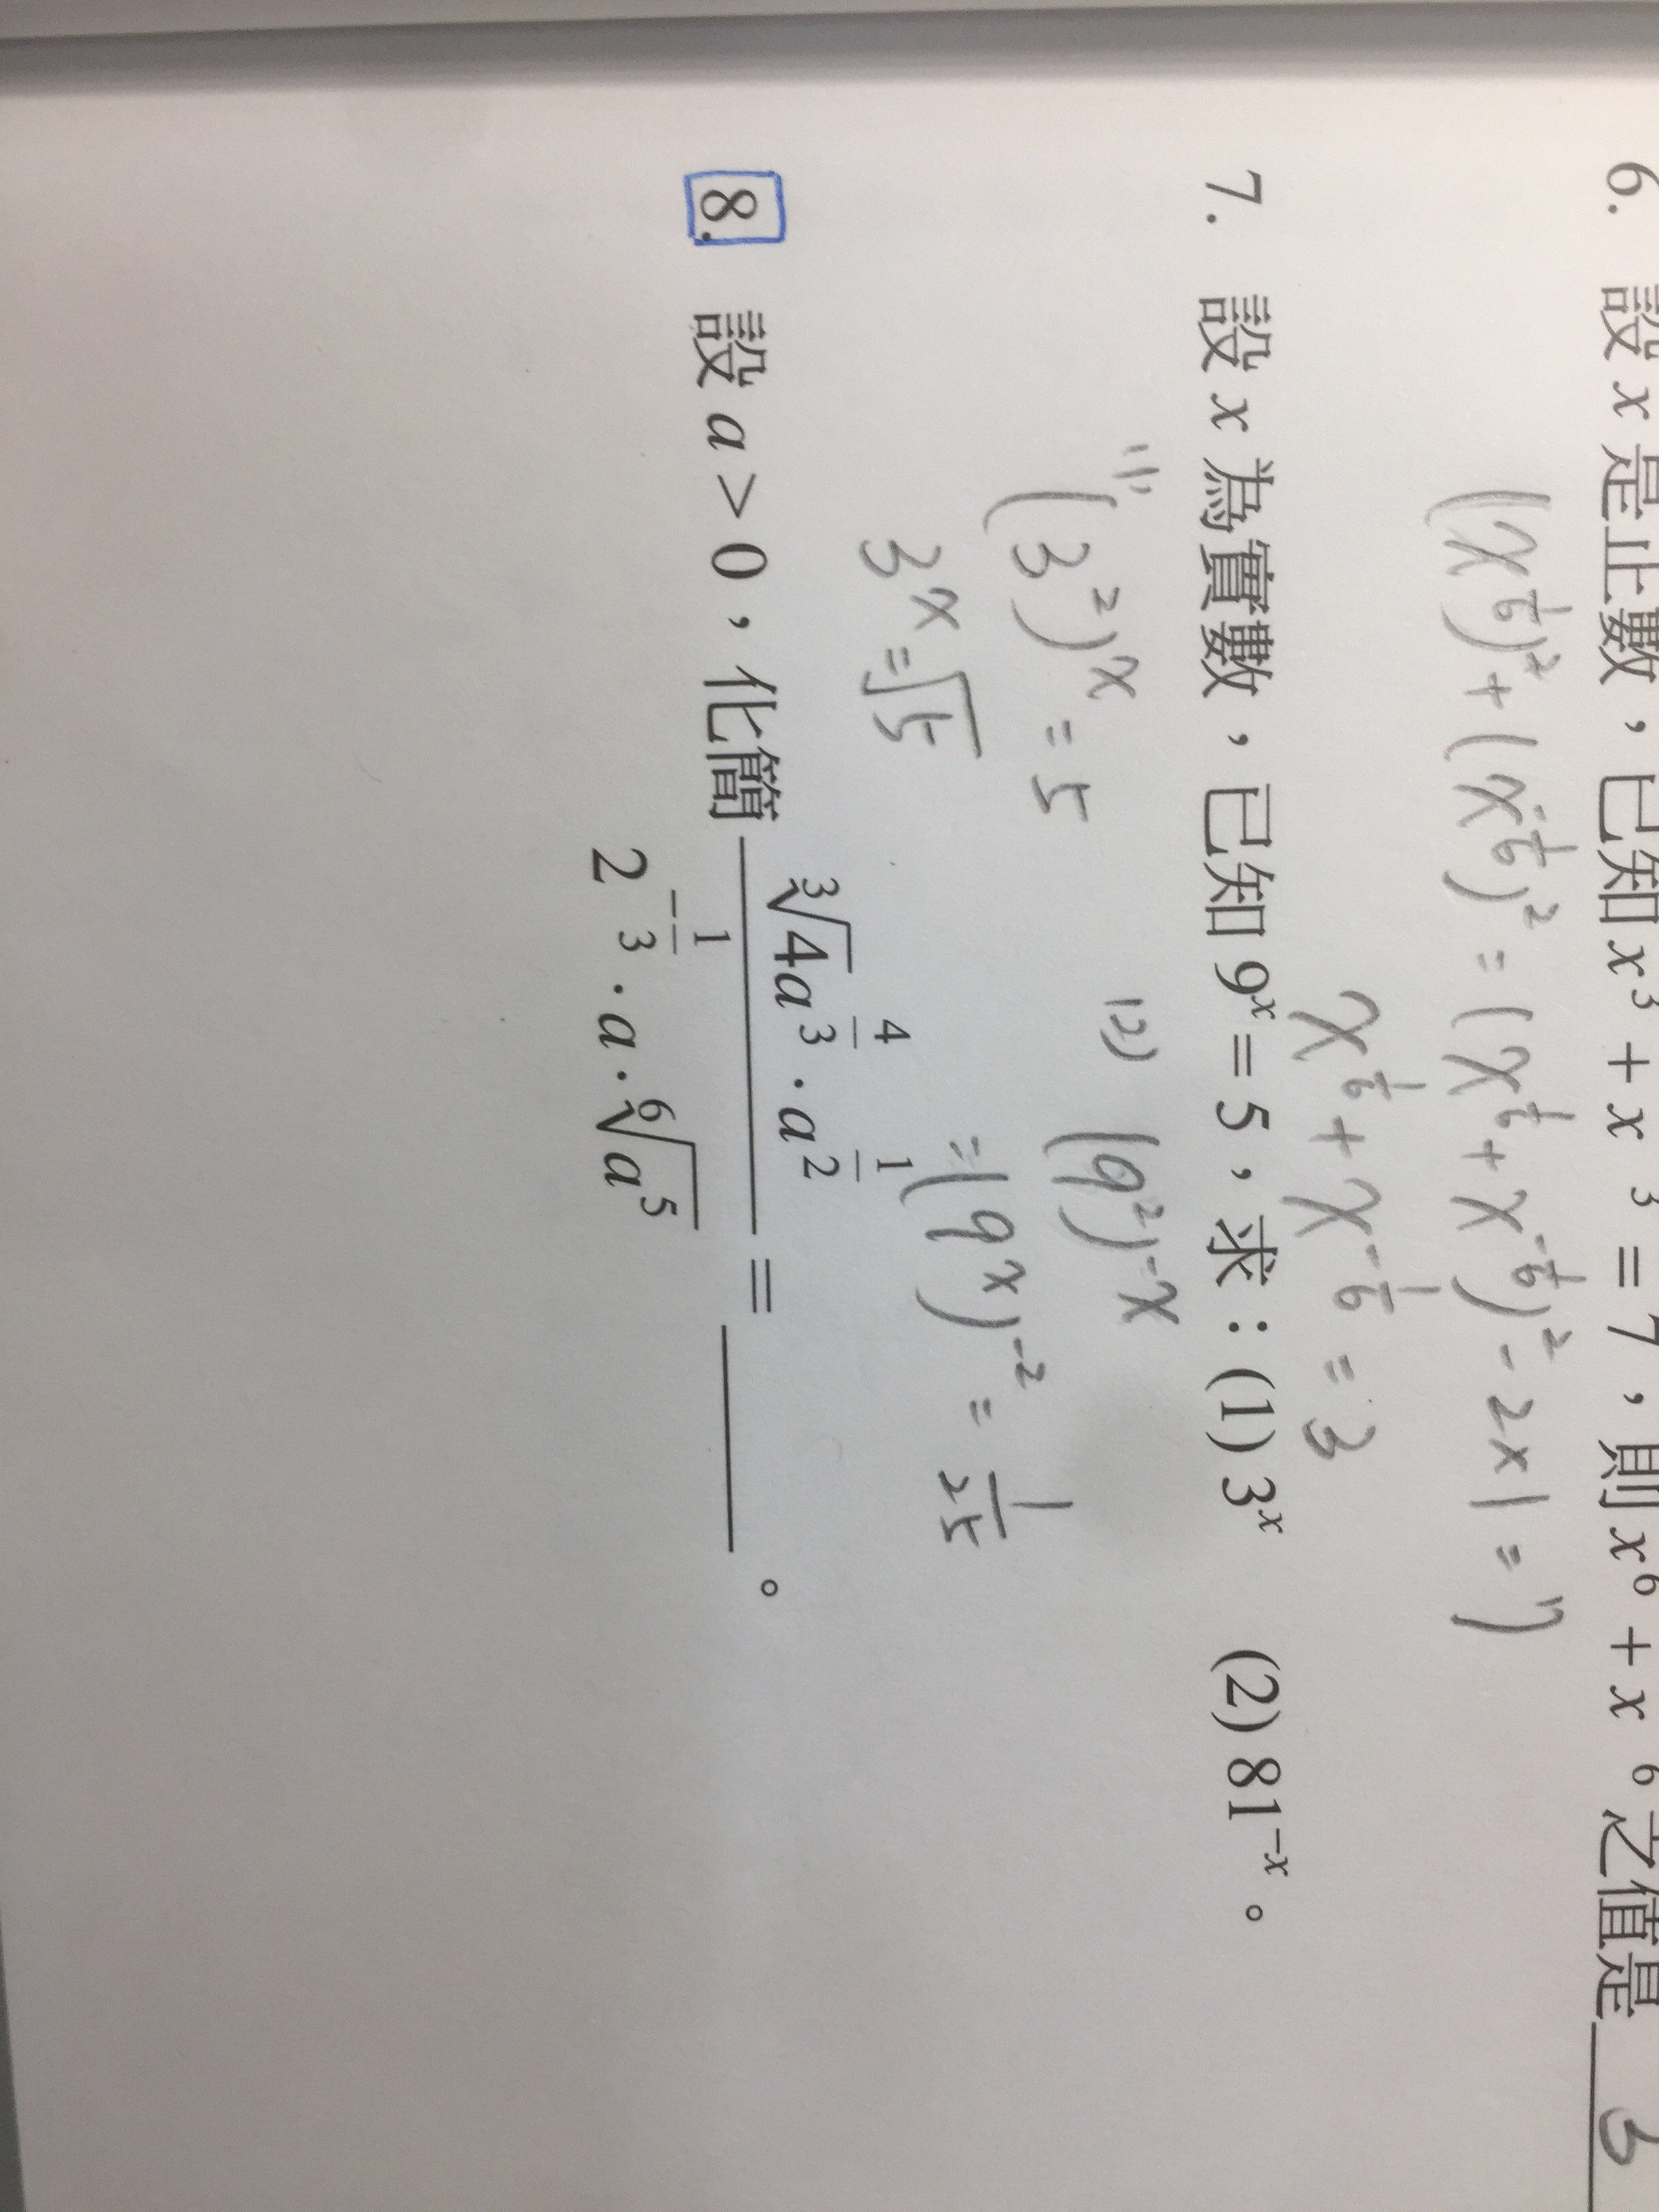 6. 設 x 是正數，已知 x³ + x ³ = 7，則 x⁶ + x ⁶ 之值是 3
(x^{1/6})² + (x^{-1/6})² = (x^{1/6} + x^{-1/6})² - 2×1 = 7
x^{1/6} + x^{-1/6} = 3
7. 設 x 為實數，已知 9ˣ = 5，求：(1) 3ˣ (2) 81⁻ˣ。
(1) (3²)ˣ = 5
3ˣ = √5
(2) (9²)⁻ˣ
= (9ˣ)⁻² = 1/25
8. 設 a > 0，化簡 (∛4a^{4/3} · a^{1/2}) / (2^{-1/3} · a · ⁶√a⁵) = ______。